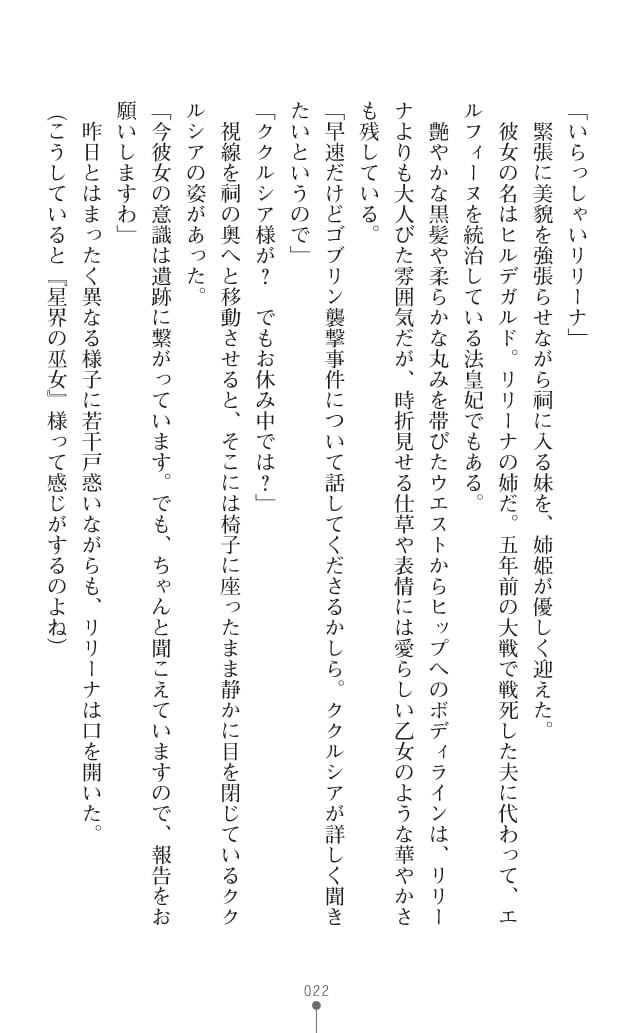 「いらっしゃいリリーナ」
　緊張に美貌を強張らせながら祠に入る妹を、姉姫が優しく迎えた。
　彼女の名はヒルデガルド。リリーナの姉だ。五年前の大戦で戦死した夫に代わって、エ
ルフィーヌを統治している法皇妃でもある。
　艶やかな黒髪や柔らかな丸みを帯びたウエストからヒップへのボディラインは、リリー
ナよりも大人びた雰囲気だが、時折見せる仕草や表情には愛らしい乙女のような華やかさ
も残している。
「早速だけどゴブリン襲撃事件について話してくださるかしら。ククルシアが詳しく聞き
たいというので」
「ククルシア様が？　でもお休み中では？」
　視線を祠の奥へと移動させると、そこには椅子に座ったまま静かに目を閉じているクク
ルシアの姿があった。
「今彼女の意識は遺跡に繋がっています。でも、ちゃんと聞こえていますので、報告をお
願いしますわ」
　昨日とはまったく異なる様子に若干戸惑いながらも、リリーナは口を開いた。
（こうしていると『星界の巫女』様って感じがするのよね）
022